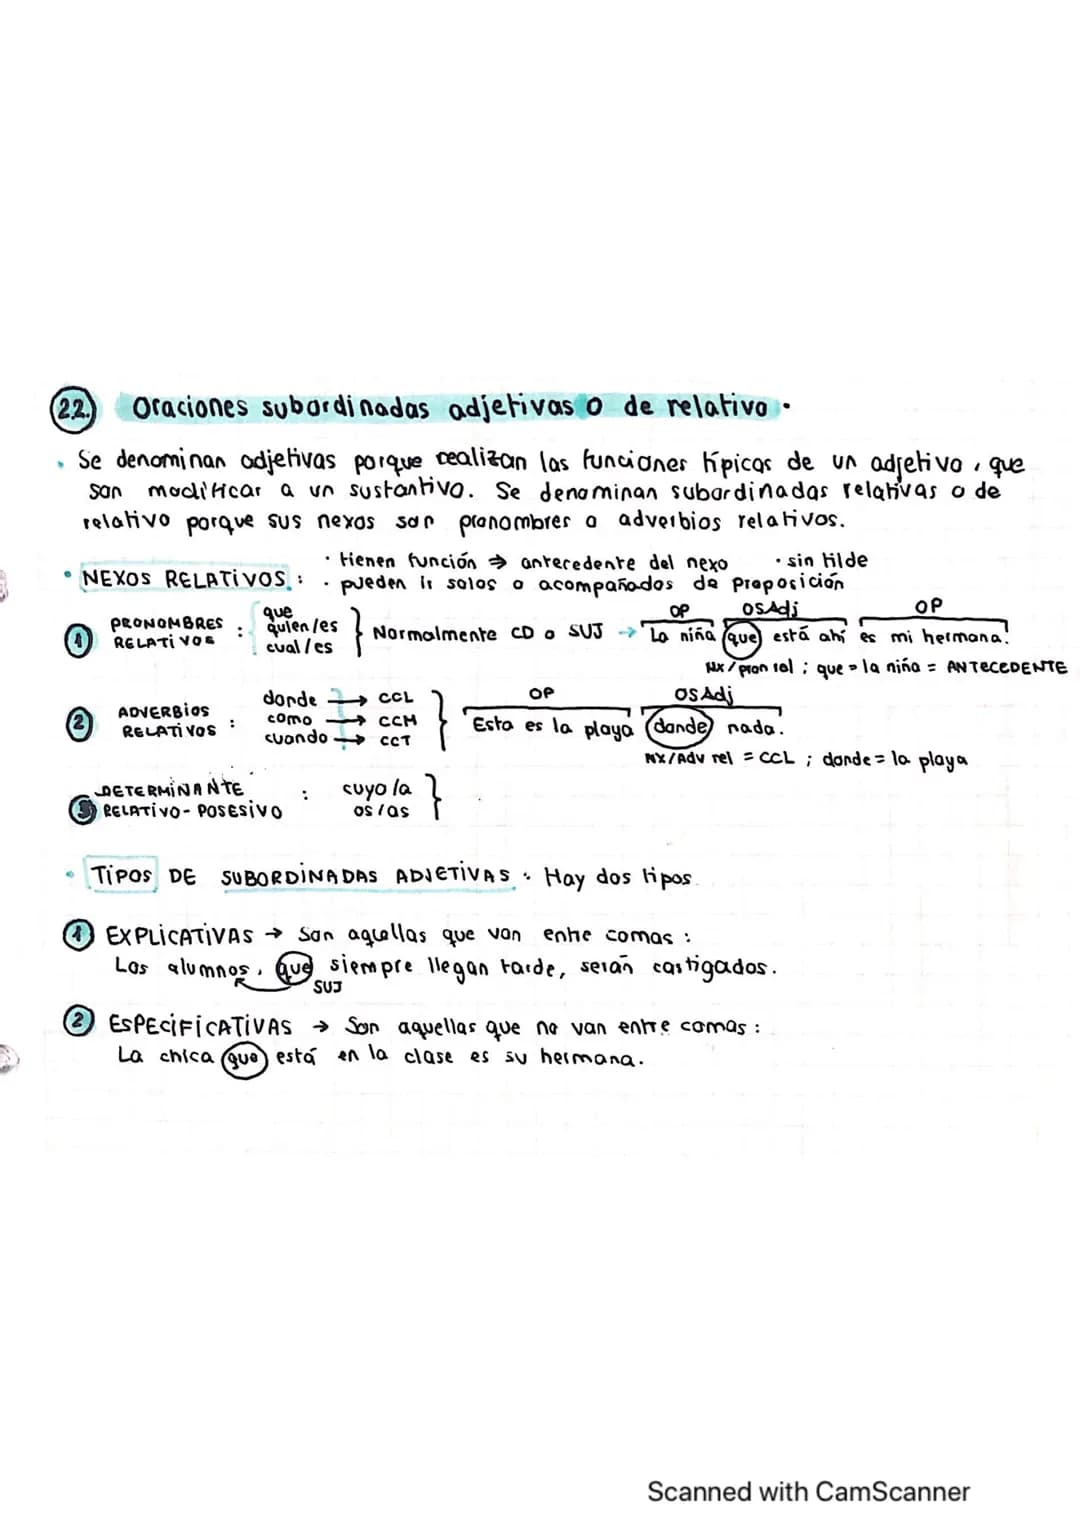 2.2. Oraciones subordinadas adjetivas o de relativo.
• Se denominan adjetivas porque realizan las funciones típicas de un adjetivo, que
son modificar a un sustantivo. Se denominan subordinadas relativas o de
relativo porque sus nexos son pronombres o adverbios relativos.
• NEXOS RELATIVOS: • tienen función ⇒ antecedente del nexo • sin tilde
• pueden ir solos o acompañados de preposición
① PRONOMBRES RELATIVOS : que
quien/es
cual/es
Normalmente CD o SUJ → La niña que está ahí es mi hermana.
OP OSAdj OP
Nx/pron rel ; que = la niña = ANTECEDENTE
② ADVERBIOS RELATIVOS : donde → CCL
como → CCM
cuando → CCT
OP OSAdj
Esta es la playa donde nada.
NX/Adv rel = CCL ; donde = la playa
③ DETERMINANTE RELATIVO-POSESIVO : cuyo/a
os/as
• TIPOS DE SUBORDINADAS ADJETIVAS: Hay dos tipos.
① EXPLICATIVAS → Son aquellas que van entre comas:
Los alumnos, que siempre llegan tarde, serán castigados.
SUJ
② ESPECIFICATIVAS → Son aquellas que no van entre comas:
La chica que está en la clase es su hermana.
Scanned with CamScanner